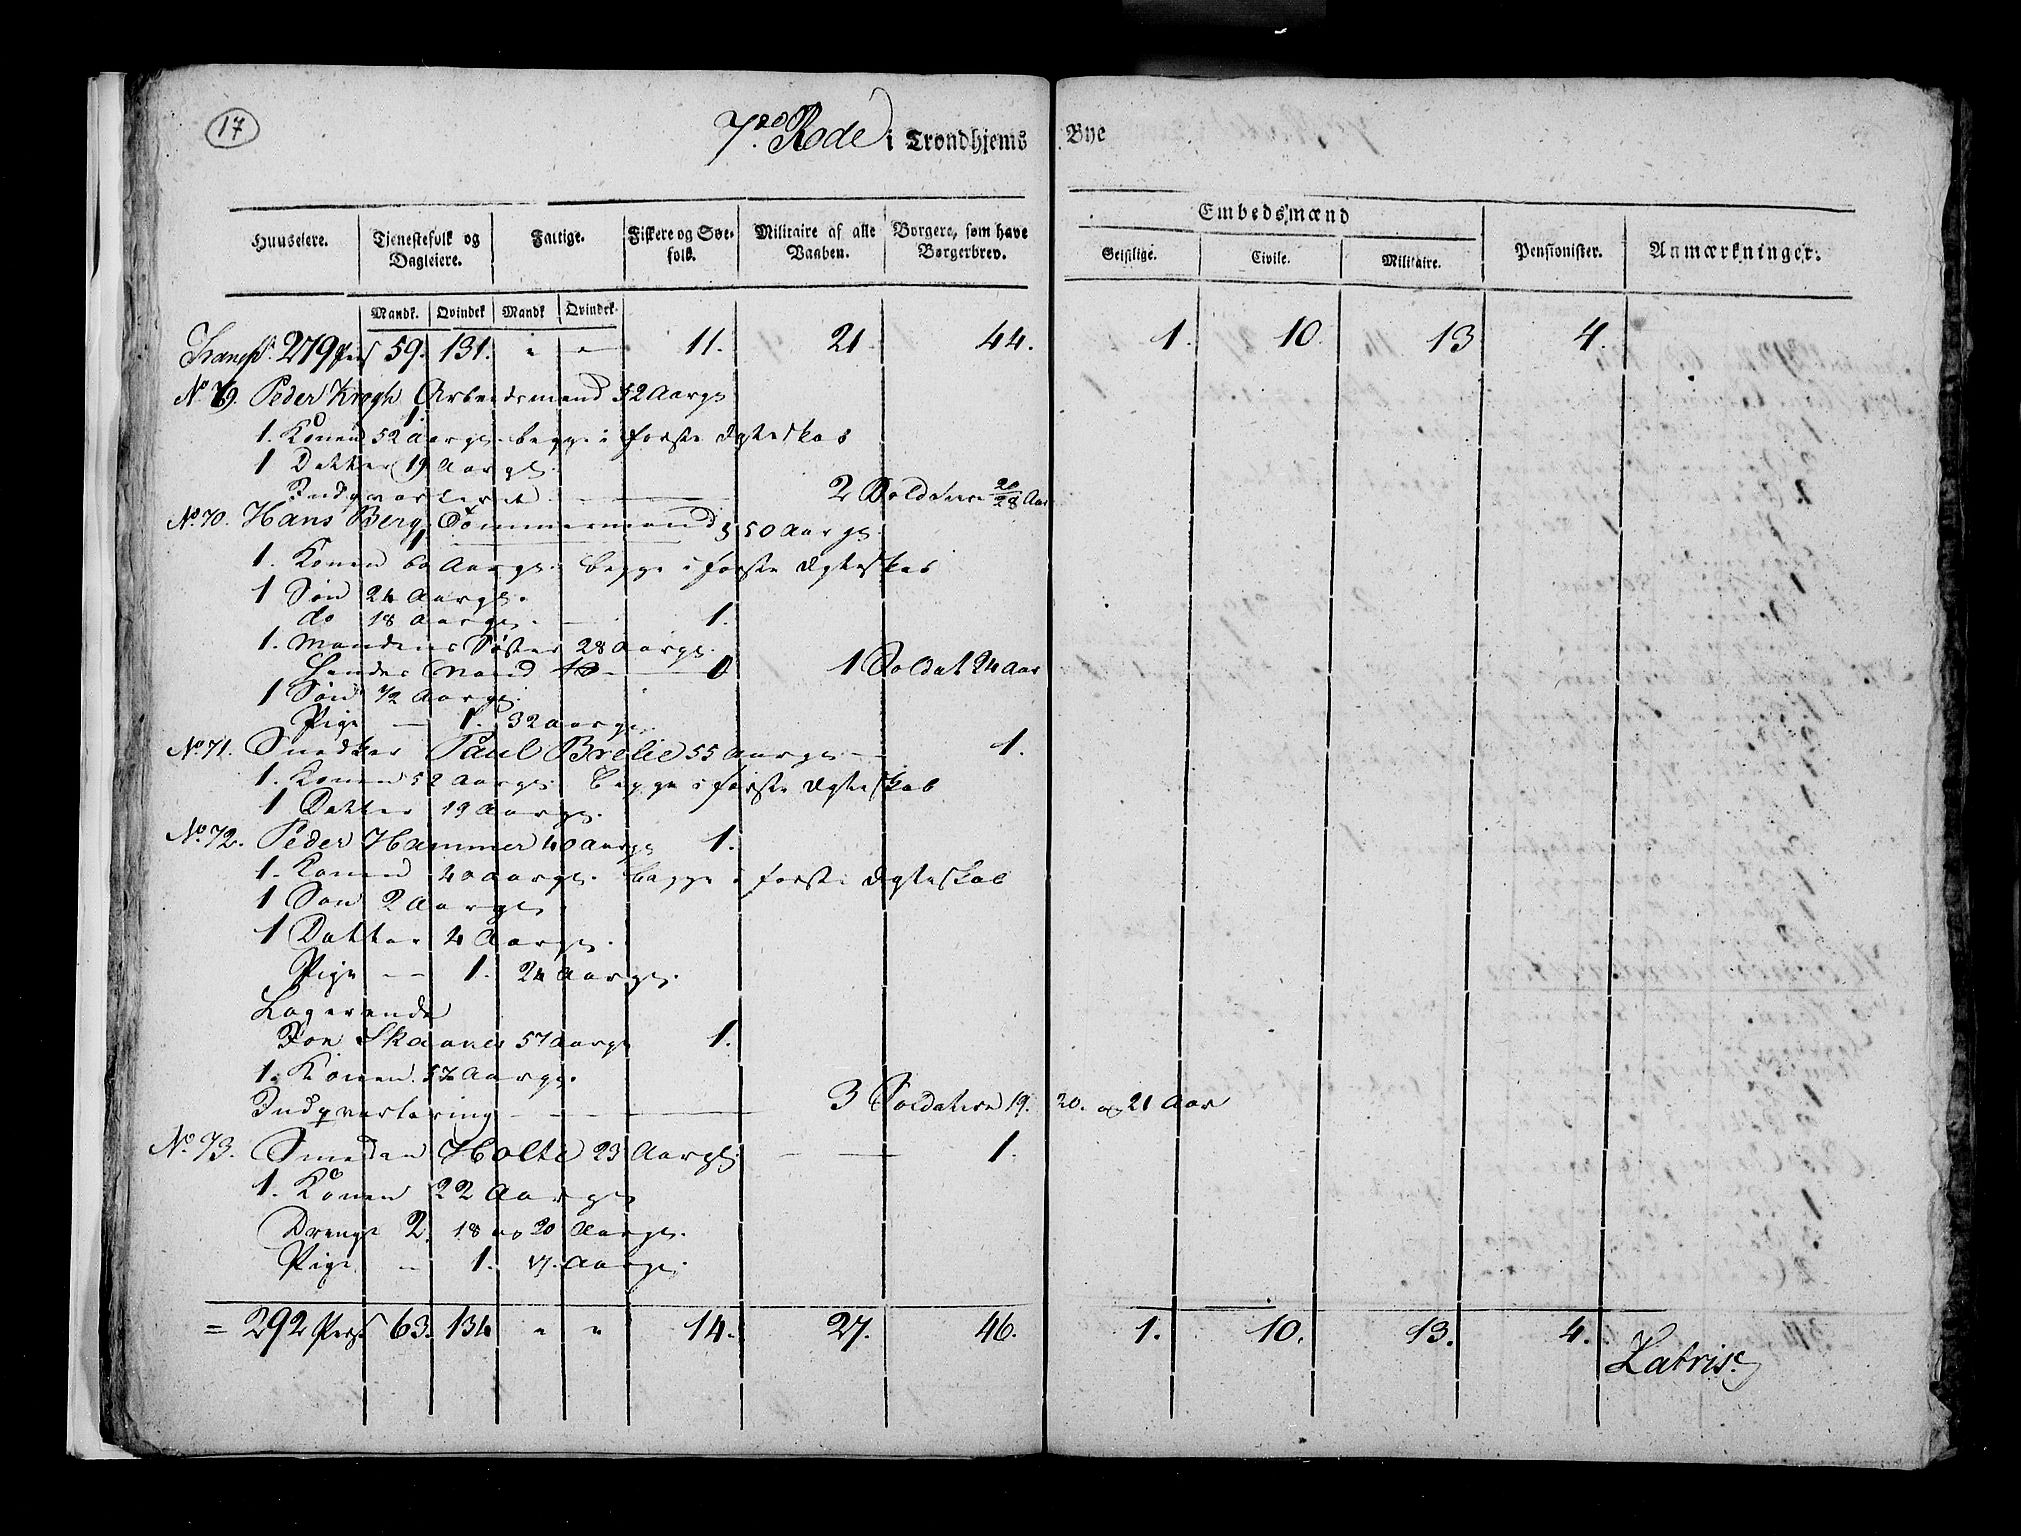 17
7de Rode i Trondhjems Bye
Huuseiere. Tjenestefolk og Dagleiere. Fattige. Fiskere og Søefolk. Militaire af alle Vaaben. Borgere, som have Borgerbrev. Embedsmænd Pensionister. Anmærkninger.
Geistlige. Civile. Militaire.
Mandk. Qvindek Mandk Qvindek.
Transpt. 279 Pers 59. 131. " " 11. 21. 44. 1. 10. 13 4.
No. 69. Peder Krogh Arbeidsmand 52 Aarge
1.
1. Konen 52 Aarge begge i første Ægteskab
1 Datter 19 Aarge
Indqvarteret — — 2 Soldater 20/28 Aar
No. 70. Hans Berg Tømmermand 50 Aarge
1.
1. Konen 60 Aarge. begge i første Ægteskab
1 Søn 24 Aarge.
do 18 Aarge. — 1.
1. Mandens Søster 28 Aarge.
Hendes Mand — 1 Soldat 24 Aar
1 Søn 1/2 Aarge
Pige — 1. 32 Aarge.
No. 71. Snedker Paul Brelie 55 Aarge — 1.
1. Konen 52 Aarge begge i første Ægteskab
1 Datter 19 Aarge.
No. 72. Peder Hammer 40 Aarge 1.
1. Konen 40 Aarge. begge i første Ægteskab
1 Søn 2 Aarge
1 Datter 4 Aarge.
Pige — 1. 24 Aarge.
Logerende
Jon Skaanes 57 Aarge 1.
1. Konen 57 Aarge.
Indqvartering — — — 3 Soldatere 19. 20. og 21 Aar
No. 73. Smeden Holte 23 Aarge — — 1.
1. Konen 22 Aarge
Drenge 2. 18 og 20 Aarge.
Pige — 1. 17. Aarge.
= 292 Pers 63. 134 " " 14. 27. 46. 1. 10. 13. 4. Latris.